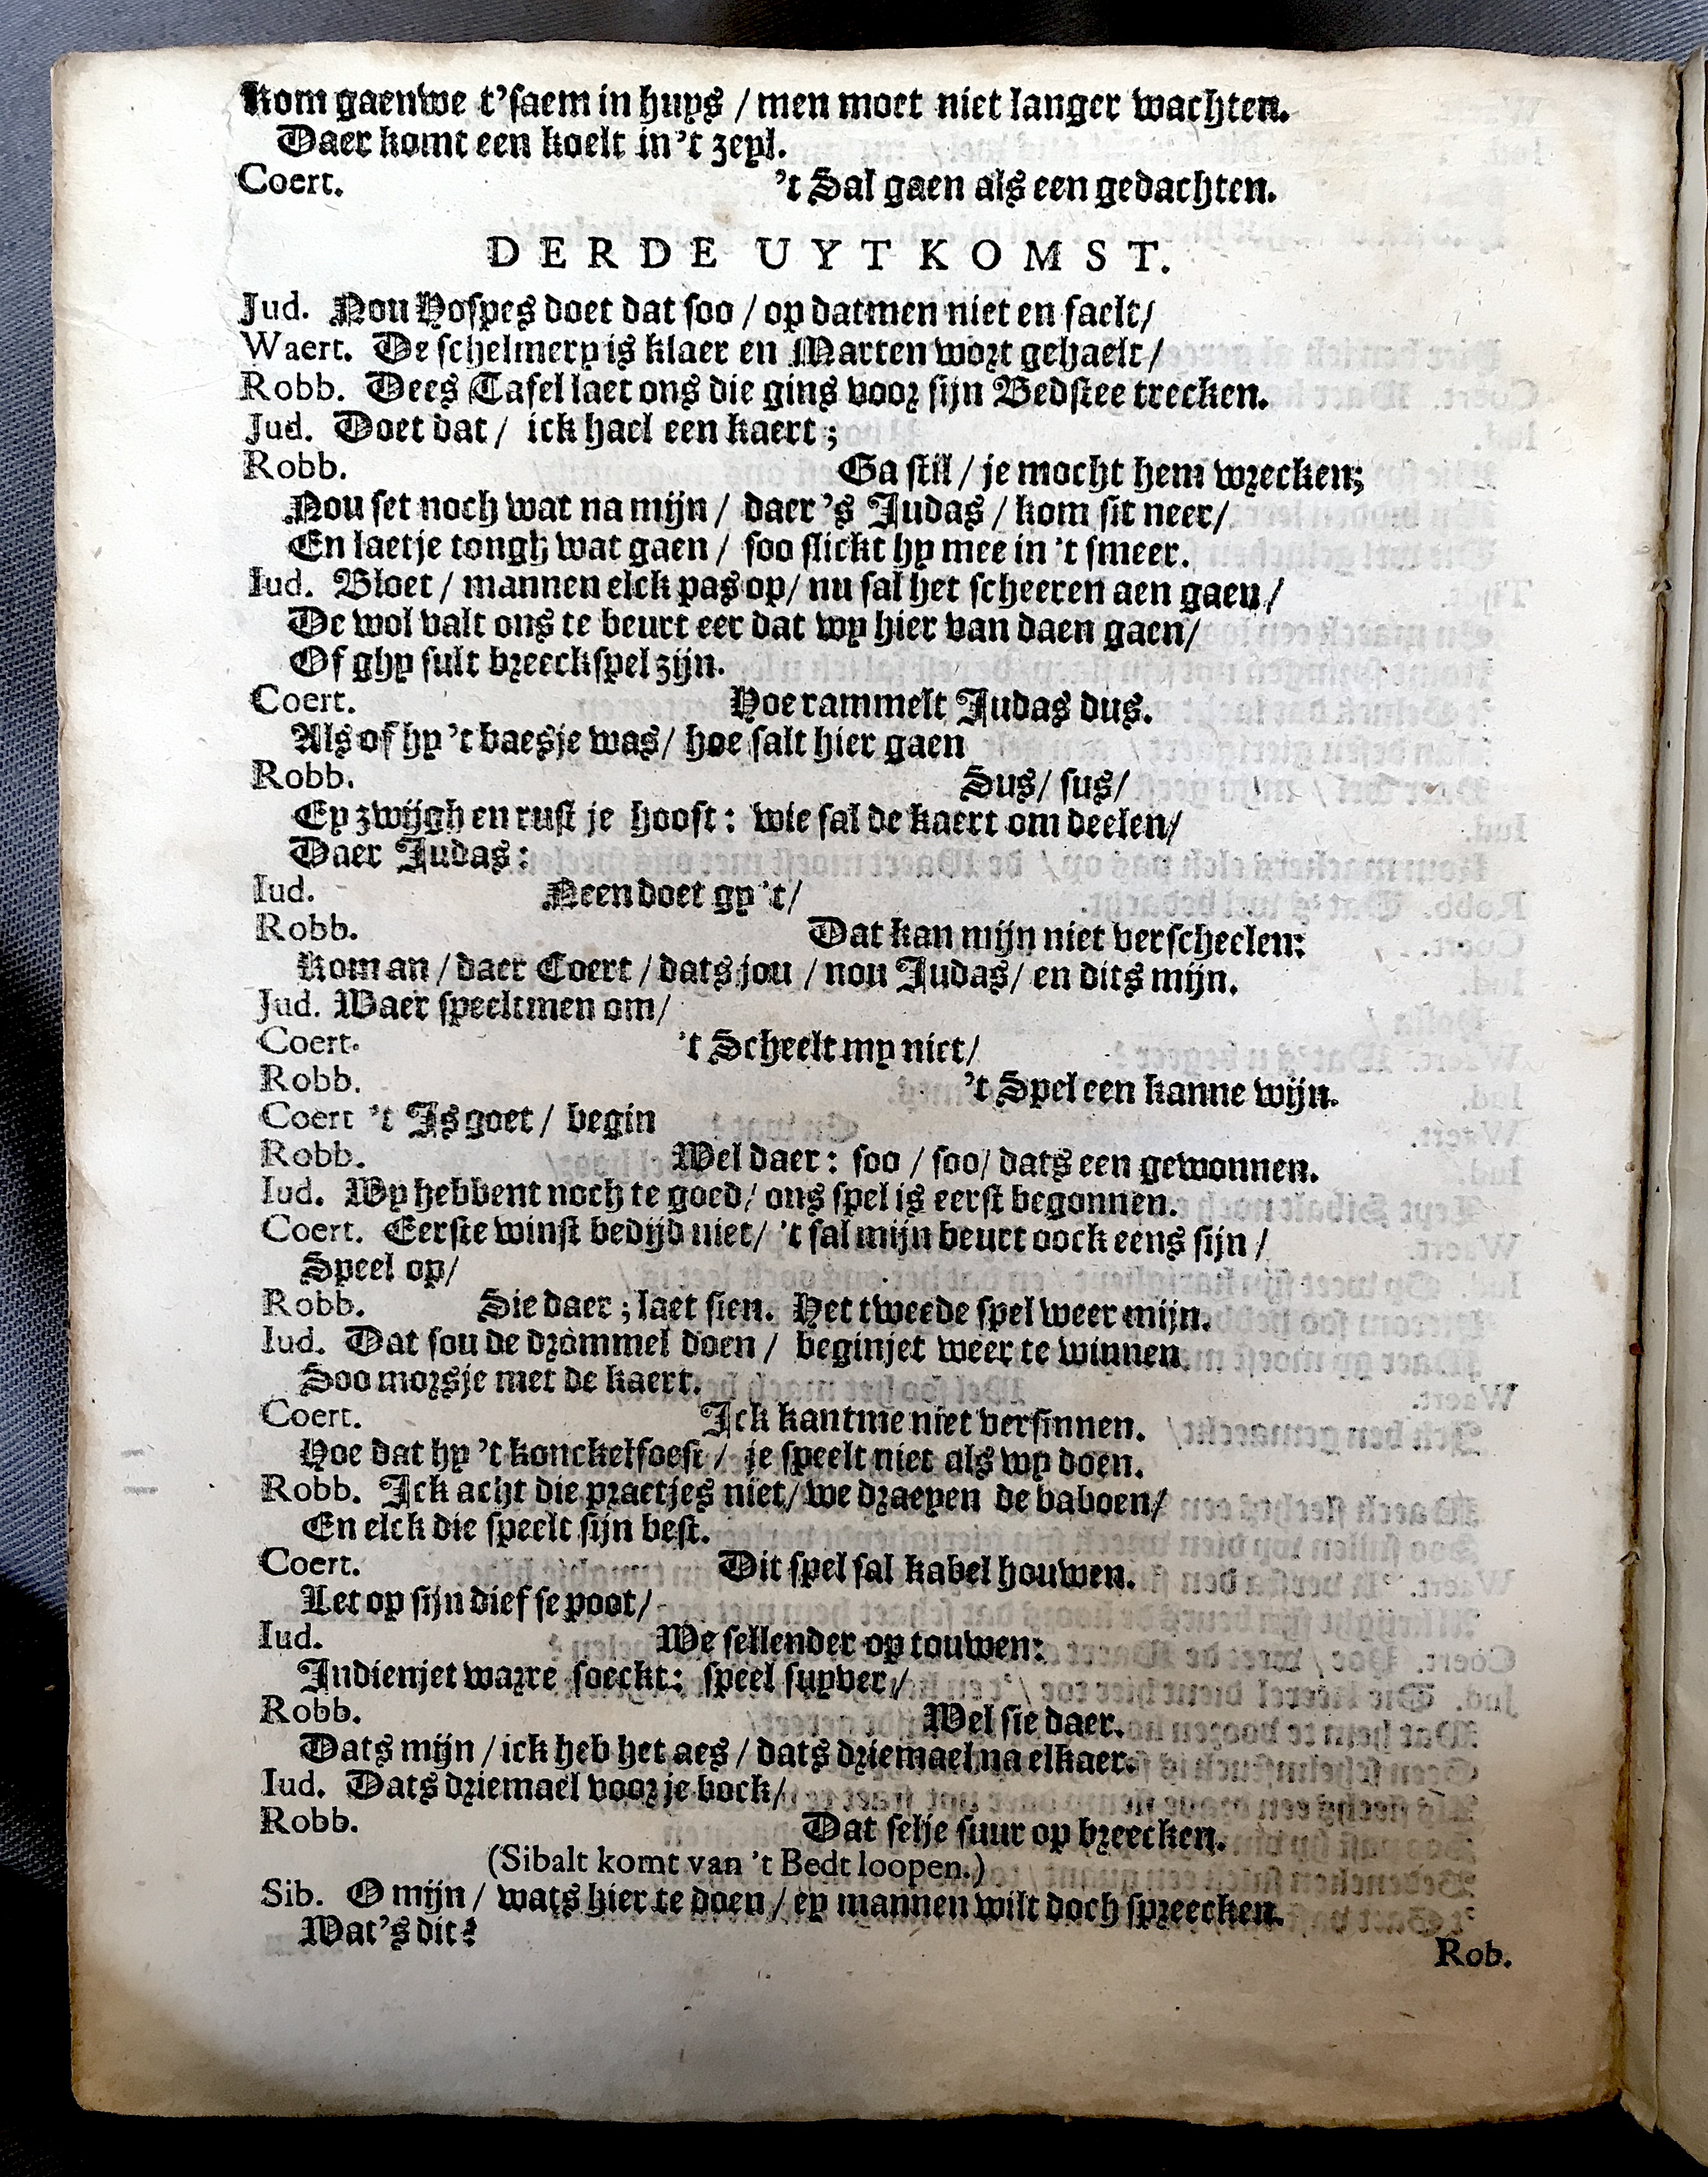 Kom gaenwe t'saem in huys / men moet niet langer wachten.
Daer komt een koelt in 't zeyl.
Coert. 't Sal gaen als een gedachten.
DERDE UYTKOMST.
Jud. Nou Hospes doet dat soo / op datmen niet en faelt /
Waert. De schelmery is klaer en Marten wort gehaelt /
Robb. Dees Tafel laet ons die gins voor sijn Bedstee trecken.
Jud. Doet dat / ick hael een kaert ;
Robb. Ga stil / je mocht hem wrecken;
Nou set noch wat na mijn / daer 's Judas / kom sit neer /
En laetje tongh wat gaen / soo slickt hy mee in 't smeer.
Iud. Bloet / mannen elck pas op / nu sal het scheeren aen gaen /
De wol valt ons te beurt eer dat wy hier van daen gaen /
Of ghy sult breeckspel zijn.
Coert. Hoe rammelt Judas dus.
Als of hy 't baesje was / hoe salt hier gaen
Robb. Sus / sus /
Ey zwijgh en rust je hooft : wie sal de kaert om deelen /
Daer Judas :
Iud. Neen doet gy 't /
Robb. Dat kan mijn niet verscheelen:
Kom an / daer Coert / dats jou / nou Judas / en dits mijn.
Jud. Waer speeltmen om /
Coert. 't Scheelt my niet /
Robb. 't Spel een kanne wijn.
Coert 't Is goet / begin
Robb. Wel daer : soo / soo / dats een gewonnen.
Iud. Wy hebbent noch te goed / ons spel is eerst begonnen.
Coert. Eerste winst bedijd niet / 't sal mijn beurt oock eens sijn /
Speel op /
Robb. Sie daer ; laet sien. Het tweede spel weer mijn.
Iud. Dat sou de drommel doen / beginjet weer te winnen.
Soo morsje met de kaert.
Coert. Ick kantme niet versinnen.
Hoe dat hy 't konckelfoest / je speelt niet als wy doen.
Robb. Ick acht die praetjes niet / we draeyen de baboen /
En elck die speelt sijn best.
Coert. Dit spel sal kabel houwen.
Let op sijn dief se poot /
Iud. We sellender op touwen:
Indienjet warre soeckt : speel suyver /
Robb. Wel sie daer.
Dats mijn / ick heb het aes / dats driemael na elkaer.
Iud. Dats driemael voor je bock /
Robb. Dat selje suur op breecken.
(Sibalt komt van 't Bedt loopen.)
Sib. O mijn / wats hier te doen / ey mannen wilt doch spreecken.
Wat's dit?
Rob.